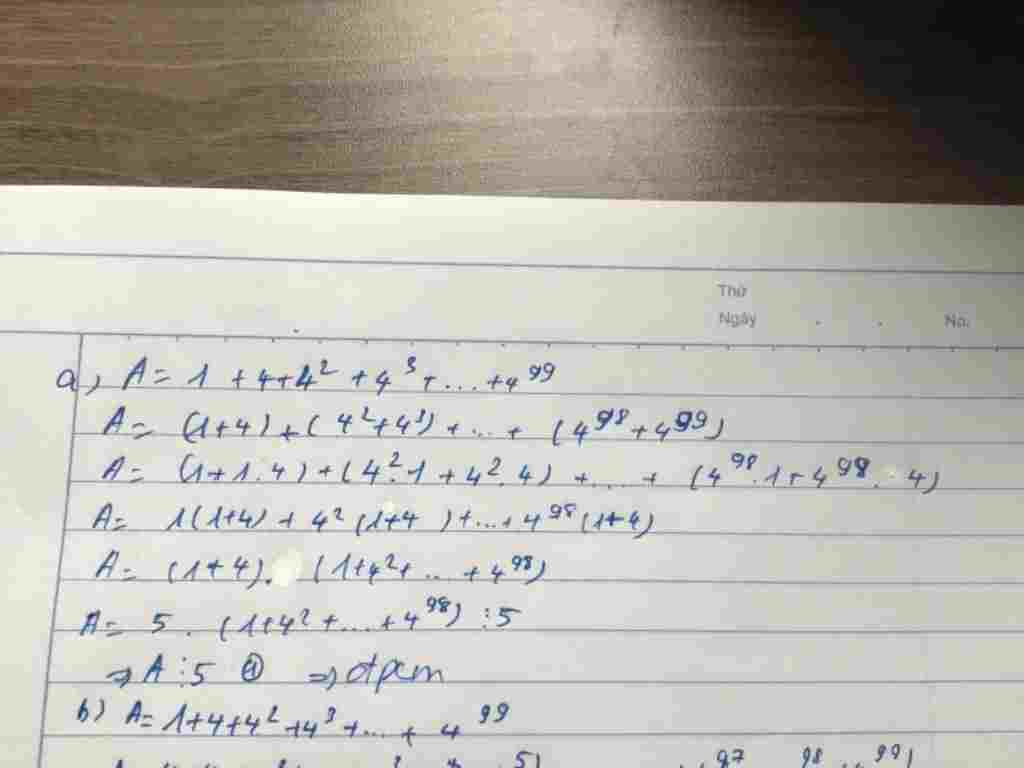 Thứ
Ngày . . No.
a) A = 1 + 4 + 4² + 4³ + ... + 4⁹⁹
A = (1+4) + (4² + 4³) + ... + (4⁹⁸ + 4⁹⁹)
A = (1 + 1.4) + (4².1 + 4².4) + ... + (4⁹⁸.1 + 4⁹⁸.4)
A = 1(1+4) + 4²(1+4) + ... + 4⁹⁸(1+4)
A = (1+4). (1+4² + ... + 4⁹⁸)
A = 5 . (1+4² + ... + 4⁹⁸) ⋮ 5
⇒ A ⋮ 5 ① ⇒ đpcm
b) A = 1 + 4 + 4² + 4³ + ... + 4⁹⁹